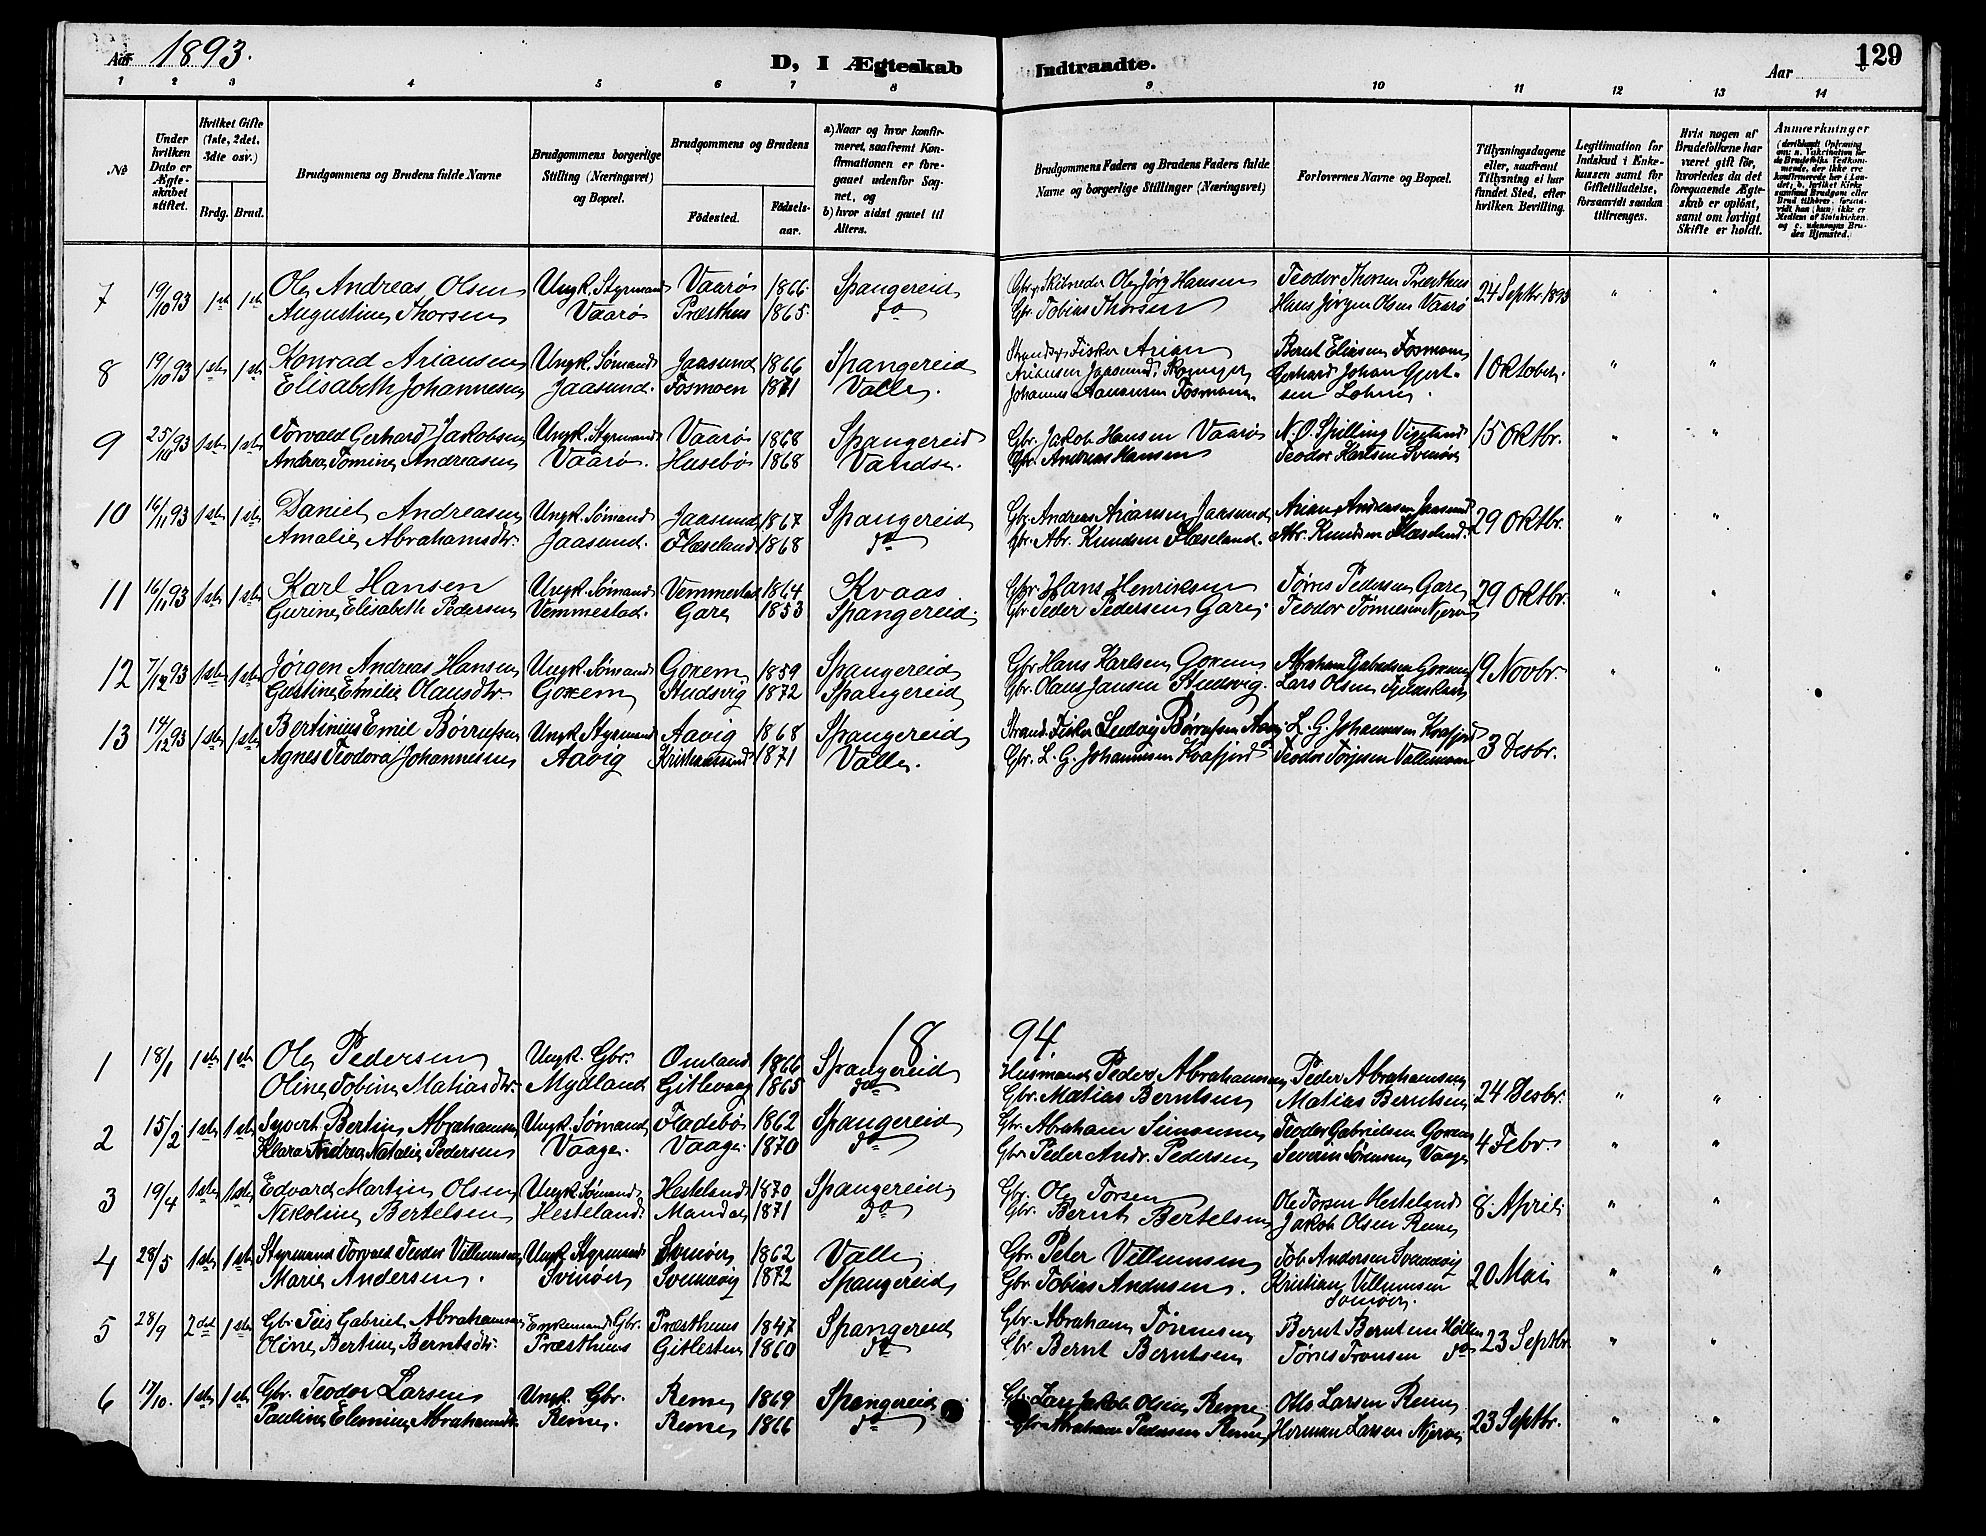 Aar 1893.
D, I Ægteskab Indtraadte.
Aar
129
1 2 3 4 5 6 7 8 9 10 11 12 13 14
No
Under hvilken Dato er Ægteskabet stiftet.
Hvilket Gifte (1ste, 2det, 3dte osv.)
Brdg. Brud.
Brudgommens og Brudens fulde Navne
Brudgommens borgerlige Stilling (Næringsvei) og Bopæl.
Brudgommens og Brudens
Fødested. Fødselsaar.
a) Naar og hvor konfirmeret, saafremt Konfirmationen er foregaaet udenfor Sognet, og
b) hvor sidst gaaet til Alters.
Brudgommens Faders og Brudens Faders fulde Navne og borgerlige Stillinger (Næringsvei)
Forlovernes Navne og Bopæl.
Tillysningsdagene eller, saafremt Tillysning ei har fundet Sted, efter hvilken Bevilling.
Legitimation for Indskud i Enkekassen samt for Giftetilladelse, forsaavidt saadan tiltrænges.
Hvis nogen af Brudefolkene har været gift før, hvorledes da det foregaaende Ægteskab er opløst, samt om lovligt Skifte er holdt.
Anmærkninger
7 19/10 93 1ste 1ste Ole Andreas Olsen Ungk. Styrmand Vaarø 1866 Spangereid Gbr. Skibreder Ole Jørg Hansen Teodor Thorsen Præsthus 24 Septbr. 1893 " "
Augustine Thorsen Vaarø Præsthus 1865 do Gbr. Tobias Thorsen Hans Jørgen Olsen Vaarø
8 19/10 93 1ste 1ste Konrad Ariansen Ungk. Sømand Jaasund 1866 Spangereid Fisker Arian Bernt Eliasen Fosmoen 1 Oktober. " "
Elisabeth Johannesen Jaasund. Fosmoen 1871 Valle. Ariansen Jaasund. Gerhard Johan Gjert-
Johannes Aanensen Fosmoen sen Lohne.
9 25/10 93 1ste 1ste Torvald Gerhard Jakobsen Ungk. Styrmand Vaarø 1868 Spangereid Gbr. Jakob Hansen Vaarø N. O. Spilling Vigeland 15 Oktbr. " "
Andrea Tomine Andreasen Vaarø. Husebø 1868 Vandse. Gbr. Andreas Hansen Teodor Karlsen Svinør
10 16/11 93 1ste 1ste Daniel Andreasen Ungk. Sømand Jaasund 1867 Spangereid Gbr. Andreas Ariansen Jaasund Arian Andreasen Jaasund 29 Oktbr. " "
Amalie Abrahamsdtr. Jaasund. Flæseland 1868 do Gbr. Abr. Knudsen Flæseland. Abr. Knudsen Flæseland.
11 16/11 93 1ste 1ste Karl Hansen Ungk. Sømand Vemmestad 1864 Kvaas Gbr Hans Henriksen Tørres Pedersen Gare 29 Oktbr. " "
Gurine Elisabeth Pedersen Vemmestad. Gare 1853 Spangereid. Gbr Peder Pedersen Gare. Teodor Tønnesen Njerve
12 7/12 93 1ste 1ste Jørgen Andreas Hansen Ungk. Sømand Goxem 1859 Spangereid Gbr Hans Karlsen Goxem Abraham Gabrielsen Goxem 9 Novbr. " "
Gustine Emilie Olausdtr. Goxem Studsvig 1872 Spangereid Gbr. Olaus Jansen Studsvig. Lars Olsen
13 14/12 93 1ste 1ste Bertinius Emil Børrufsen Ungk Styrmand Aavig 1868 Spangereid Strands. Fisker Ludvig Børrufsen Aavig L. G. Johannesen Kvafjord 3 Desbr.
Agnes Teodora Johannesen Aavig Kristiansund 1871 Valle. Gbr. L. G. Johannesen Kvafjord Teodor Torjusen Vallemoen
1894
1 18/1 1ste 1ste Ole Pedersen Ungk. Gbr. Omland 1866 Spangereid Husmand Peder Abrahamsen Peder Abrahamsen 24 Desbr. " "
Oline Tobine Matiasdtr. Mydland Gitlevaag 1865 do Gbr. Matias Berntsen Matias Berntsen
2 15/2 1ste 1ste Syvert Bertin Abrahamsen Ungk. Sømand Fladebø 1862 Spangereid Gbr. Abraham Simonsen Teodor Gabrielsen Goxem 4 Febr. " "
Klara Andrea Natalie Pedersen Vaage. Vaage. 1870 do Gbr Peder Andr. Pedersen Severin Sørensen Vaage
3 19/4 1ste 1ste Edvard Martin Olsen Ungk. Sømand Hesteland 1870 Spangereid. Gbr. Ole Torsen Ole Torsen Hesteland 8. April. " "
Nikoline Bertelsen Hesteland. Mandal 1871 do Gbr. Bernt Bertelsen Jakob Olsen Reme
4 28/5 1ste 1ste Styrmand Torvald Teodor Villumsen Ungk Styrmand Svinør 1862 Valle. Gbr. Peter Villumsen Tob. Andersen Svennevig 20 Mai " "
Marie Andersen. Svinør Svennevig 1872 Spangereid Gbr Tobias Andersen. Kristian Villumsen
Svinør.
5 28/9 2det 1ste Gbr. Teis Gabriel Abrahamsen Enkemand Gbr. Præsthus 1847 Spangereid Gbr. Abraham Tønnesen Bernt Berntsen Høllen 23 Septbr. " "
Oline Bertine Berntsdtr. Præsthus Gitlesten 1860 do Gbr. Bernt Berntsen Tønes Fransen do
6 17/10. 1ste 1ste Gbr. Teodor Larsen Ungk. Gbr. Reme 1869 Spangereid Gbr Lars Jakob Olsen Reme Otto Larsen Reme 23 Septbr. " "
Pauline Elemine Abrahamsdtr. Reme. Reme 1866 do Gbr Abraham Pedersen Reme Herman Larsen Njerve